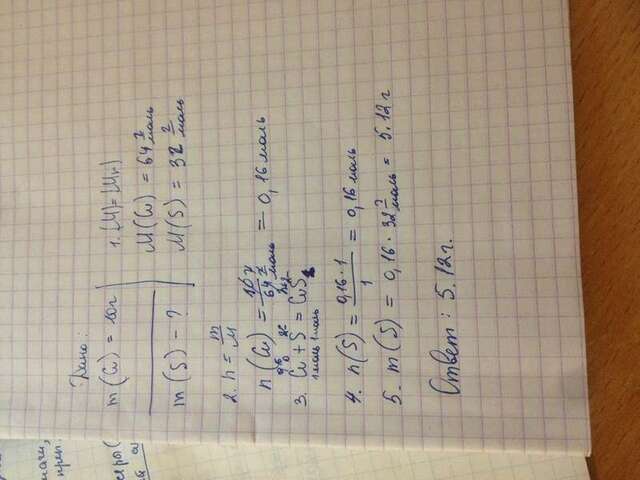 мачи,
Дано:
m(Cu) = 10г
m(S) - ?
1. |M| = |Mr|
M(Cu) = 64 г/моль
M(S) = 32 г/моль
2. n = m/M
n(Cu) = 10 г / 64 г/моль = 0,16 моль
3. Cu + S = CuS
1 моль 1 моль
4. n(S) = 0,16 · 1 / 1 = 0,16 моль
5. m(S) = 0,16 · 32 г/моль = 5.12 г
Ответ: 5.12 г.